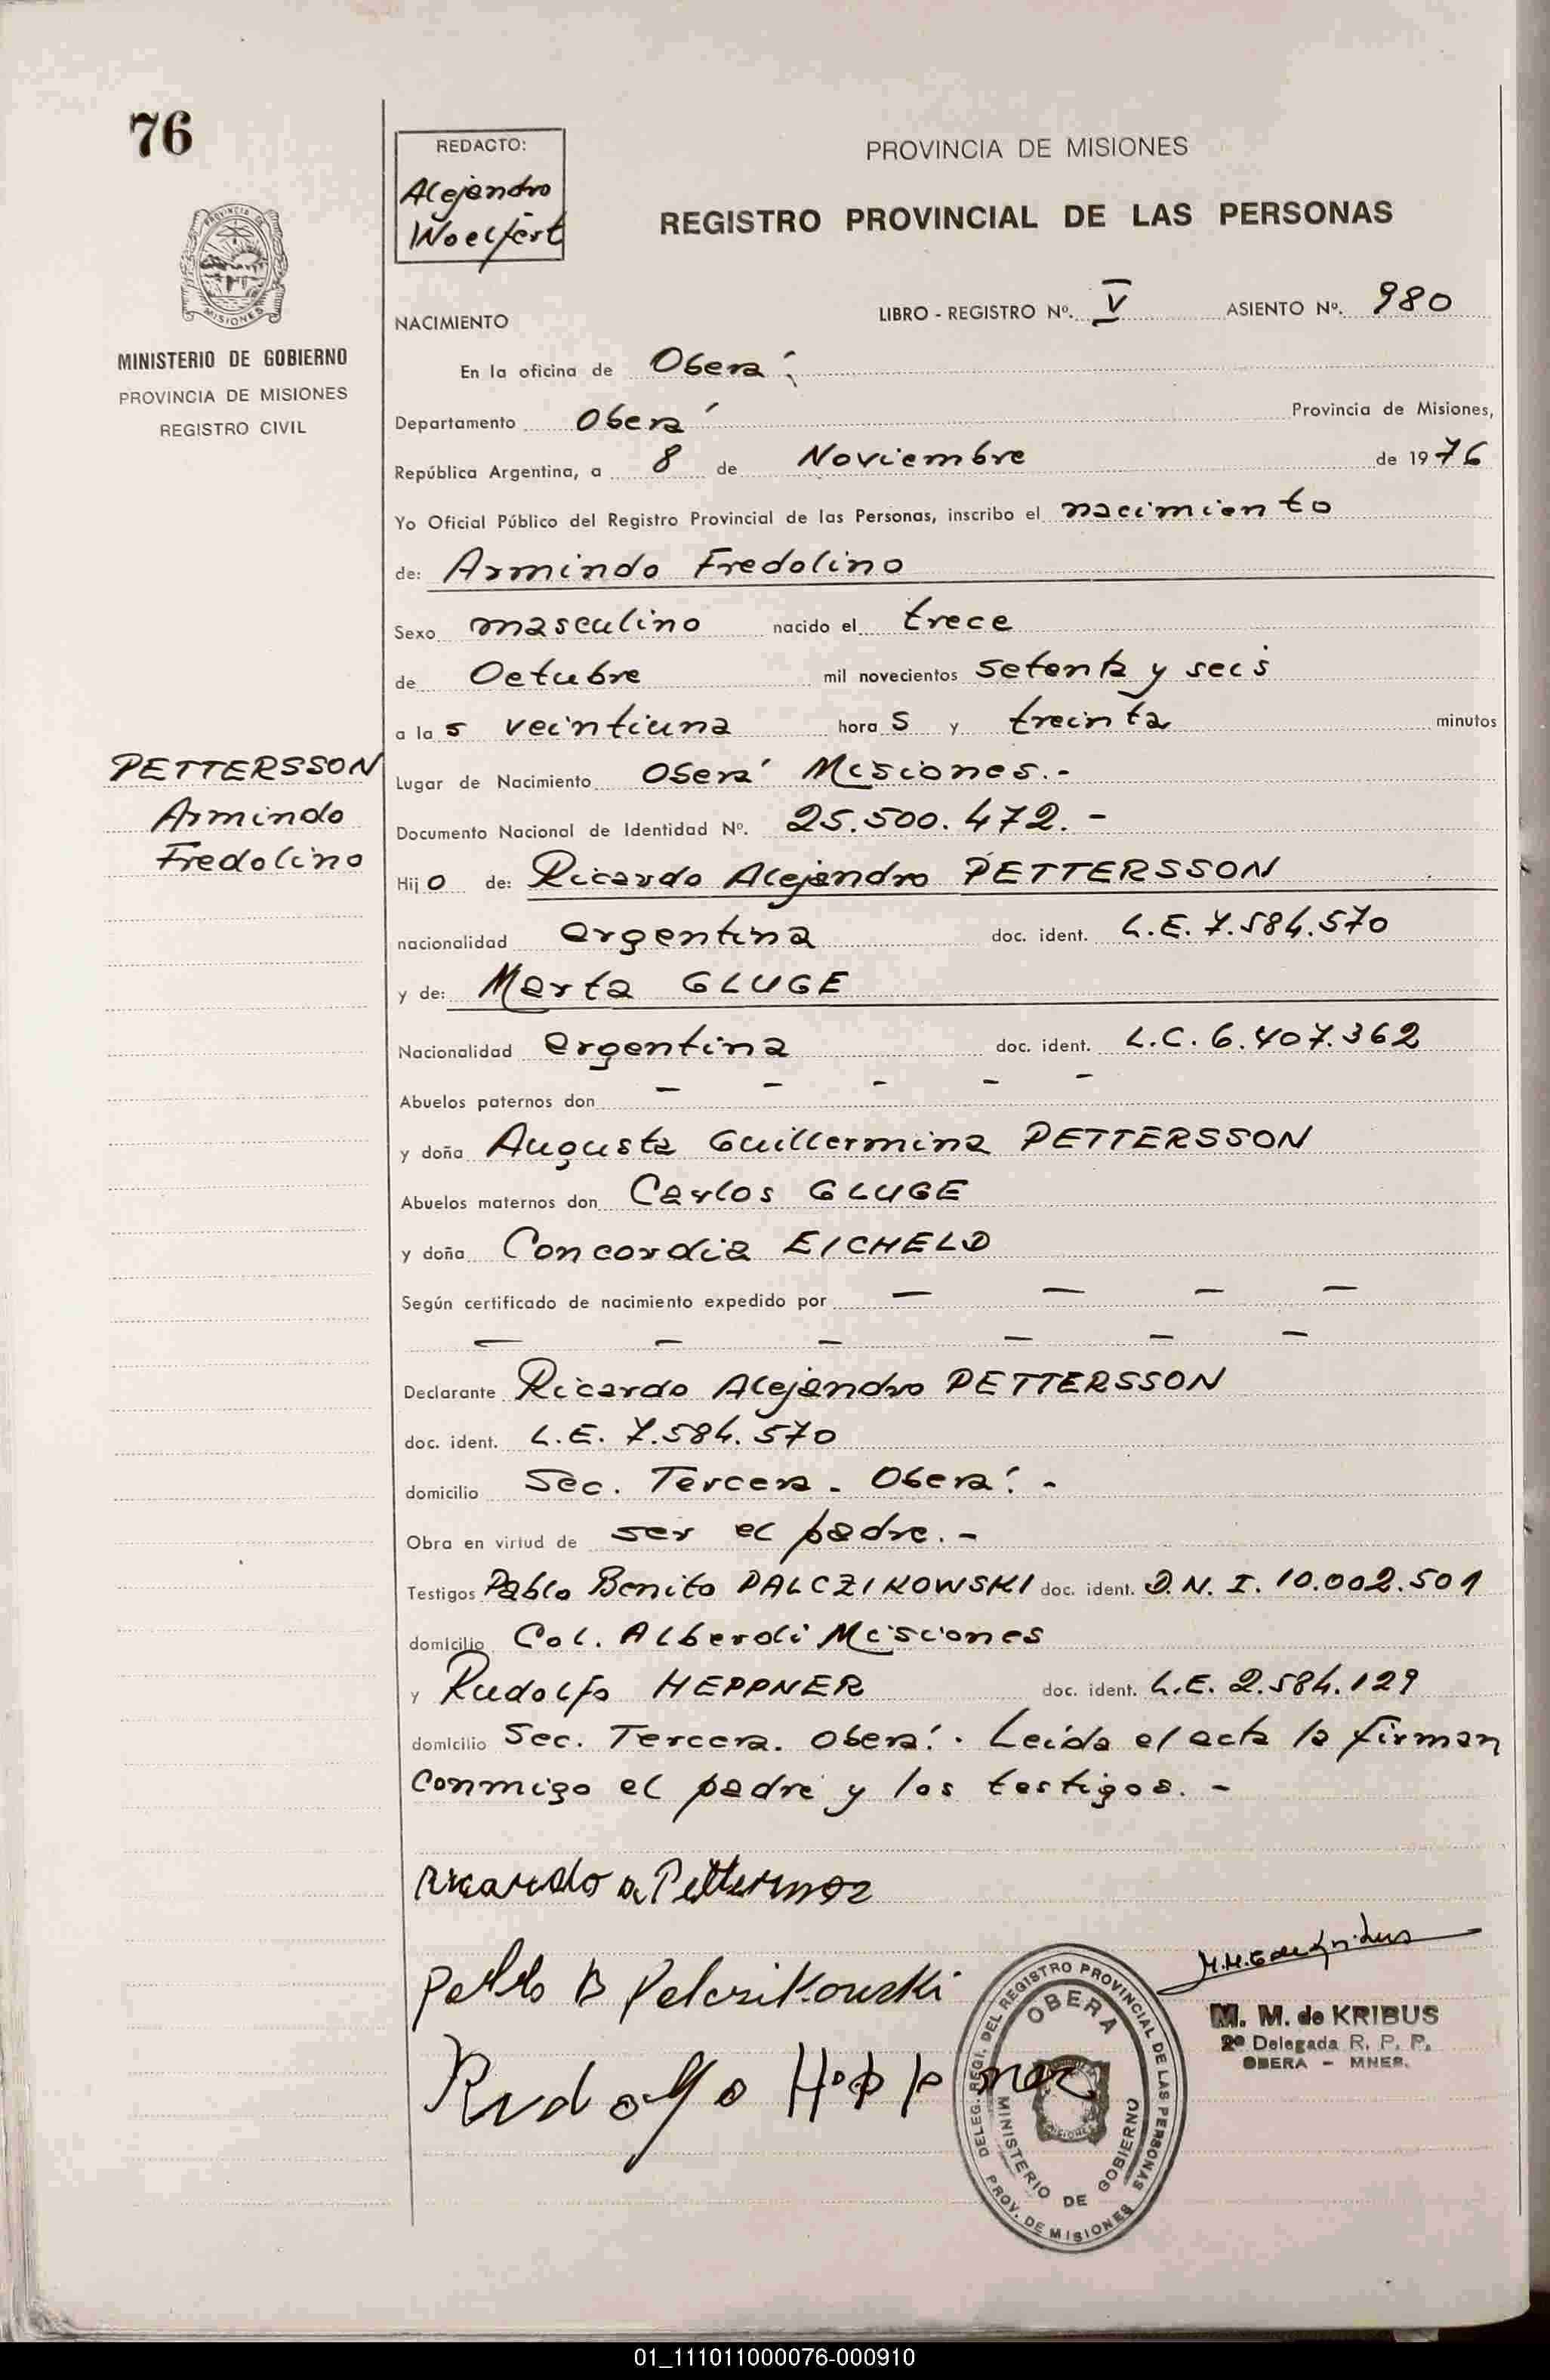 76
REDACTO:
Alejandro
Woelfert
PROVINCIA DE MISIONES
REGISTRO PROVINCIAL DE LAS PERSONAS
PROVINCIA DE
MISIONES
MINISTERIO DE GOBIERNO
PROVINCIA DE MISIONES
REGISTRO CIVIL
NACIMIENTO
LIBRO - REGISTRO Nº. V ASIENTO Nº. 980
En la oficina de Oberá;
Departamento Oberá Provincia de Misiones,
República Argentina, a 8 de Noviembre de 1976
Yo Oficial Público del Registro Provincial de las Personas, inscribo el nacimiento
de: Armindo Fredolino
Sexo masculino nacido el trece
de Octubre mil novecientos setenta y seis
a las veintiuna horas y treinta minutos
PETTERSSON
Armindo
Fredolino
Lugar de Nacimiento Oberá Misiones.-
Documento Nacional de Identidad Nº. 25.500.472.-
Hijo de: Ricardo Alejandro PETTERSSON
nacionalidad argentina doc. ident. L.E. 7.584.570
y de: Marta GLUGE
Nacionalidad argentina doc. ident. L.C. 6.407.362
Abuelos paternos don - - - - -
y doña Augusta Guillermina PETTERSSON
Abuelos maternos don Carlos GLUGE
y doña Concordia EICHELD
Según certificado de nacimiento expedido por - - - -
- - - - - -
Declarante Ricardo Alejandro PETTERSSON
doc. ident. L.E. 7.584.570
domicilio Sec. Tercera. Oberá.-
Obra en virtud de ser el padre.-
Testigos Pablo Benito PALCZIKOWSKI doc. ident. D.N.I. 10.002.501
domicilio Col. Alberdi Misiones
y Rudolfo HEPPNER doc. ident. L.E. 2.584.129
domicilio Sec. Tercera. Oberá. Leída el acta la firman
conmigo el padre y los testigos.-
Ricardo a Pettersson
Pablo B Palczikowski
Rudolfo Heppner
DELEG. REGI. DEL REGISTRO PROVINCIAL DE LAS PERSONAS
OBERA
MINISTERIO DE GOBIERNO
PROV. DE MISIONES
M. M. de KRIBUS
2º Delegada R. P. P.
OBERA - MNES.
01_111011000076-000910